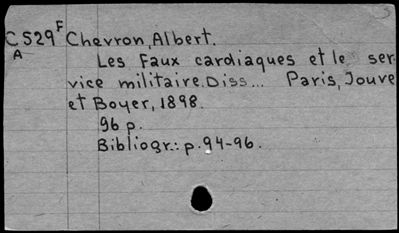 C529F Chevron, Albert.
A
Les Faux cardiaques et le ser-
vice militaire. Diss... Paris, Jouve
et Boyer, 1898.
96 p.
Bibliogr.: p. 94-96.